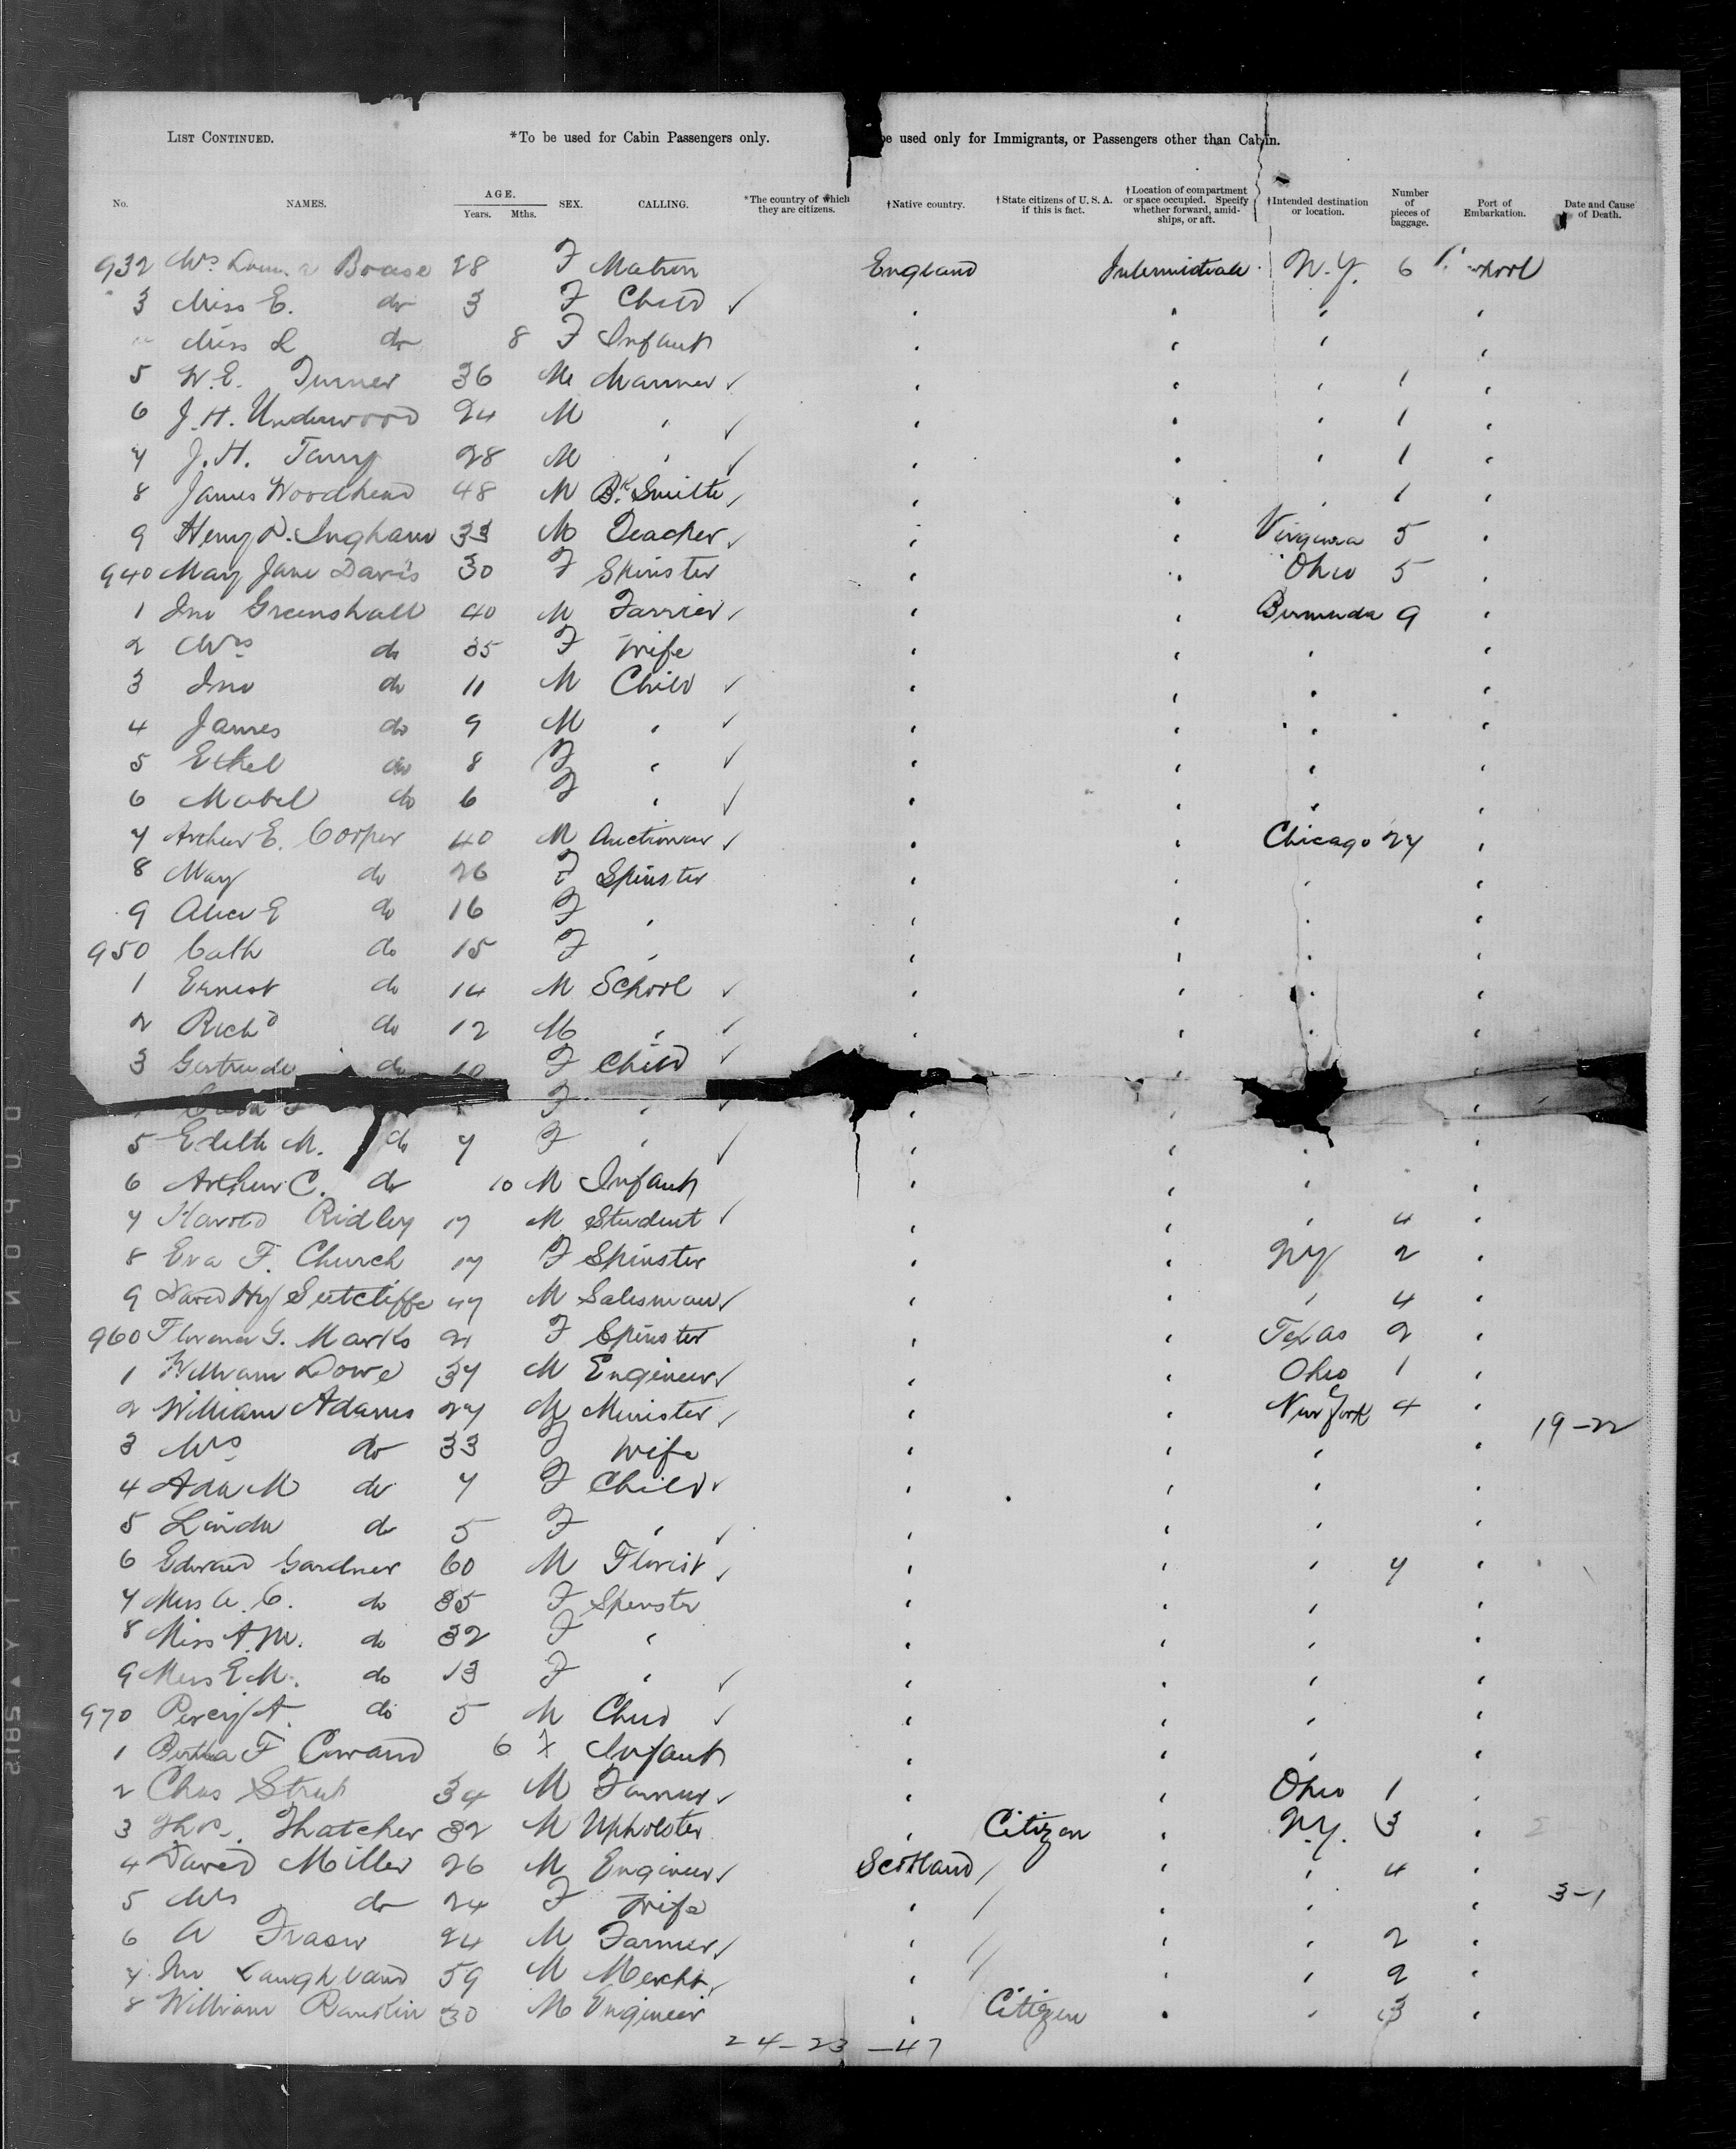 LIST CONTINUED. *To be used for Cabin Passengers only. be used only for Immigrants, or Passengers other than Cabin.
No. NAMES. AGE. Years. Mths. SEX. CALLING. *The country of which they are citizens. †Native country. †State citizens of U. S. A. if this is fact. †Location of compartment or space occupied. Specify whether forward, amidships, or aft. †Intended destination or location. Number of pieces of baggage. Port of Embarkation. Date and Cause of Death.
932 Mrs Boase 28 F Matron England Intermediate N.Y. 6
3 Miss E. do 3 F Child ✓
Miss L do 8 F Infant
5 W.E. Turner 36 M Mariner ✓ 1
6 J.H. Underwood 24 M " ✓ 1
7 J.H. 28 M " ✓ 1
8 James Woodhead 48 M Bk Smith ✓ 1
9 Henry P. Ingham 33 M Teacher ✓ Virginia 5
940 Mary Jane Davis 30 F Spinster Ohio 5
1 Jno Greenshall 40 M Farrier ✓ Bermuda 9
2 Mrs do 35 F Wife
3 Jno do 11 M Child ✓
4 James do 9 M " ✓
5 Ethel do 8 F " ✓
6 Mabel do 6 F " ✓
7 Arthur E. Cooper 40 M Auctioneer ✓ Chicago 27
8 May do 26 F Spinster
9 Alice E do 16 F "
950 Cath do 15 F "
1 Ernest do 14 M School ✓
2 Richd do 12 M " ✓
3 Gertrude do 10 F Child ✓
F " ✓
5 Edith M. do 7 F " ✓
6 Arthur C. do 10 M Infant
7 Harold Ridley 17 M Student ✓ " 4
8 Eva F. Church 17 F Spinster NY 2
9 David Hy Sutcliffe 47 M Salesman ✓ " 4
960 Florence G. Marks 21 F Spinster Texas 2
1 William Dowe 37 M Engineer ✓ Ohio 1
2 William Adams 27 M Minister ✓ New York 4 19-22
3 Mrs do 33 F Wife
4 Ada M do 7 F Child ✓
5 Linda do 5 F " ✓
6 Edward Gardner 60 M Florist ✓ " 7
7 Miss A. C. do 35 F Spinster
8 Miss A.M. do 32 F "
9 Miss E.M. do 13 F " ✓
970 Percy A. do 5 M Child ✓
1 Bertha F Coward 6 F Infant
2 Chas Strut 34 M Farmer ✓ Ohio 1
3 Thos. Thatcher 32 M Upholster Citizen N.Y. 3
4 David Miller 26 M Engineer ✓ Scotland / " 4
5 Mrs do 24 F Wife " / 3-1
6 A Fraser 24 M Farmer ✓ " / " 2
7 Jno Laughland 59 M Mercht ✓ " / " 2
8 William Rankin 30 M Engineer Citizen " 3
24-23-47